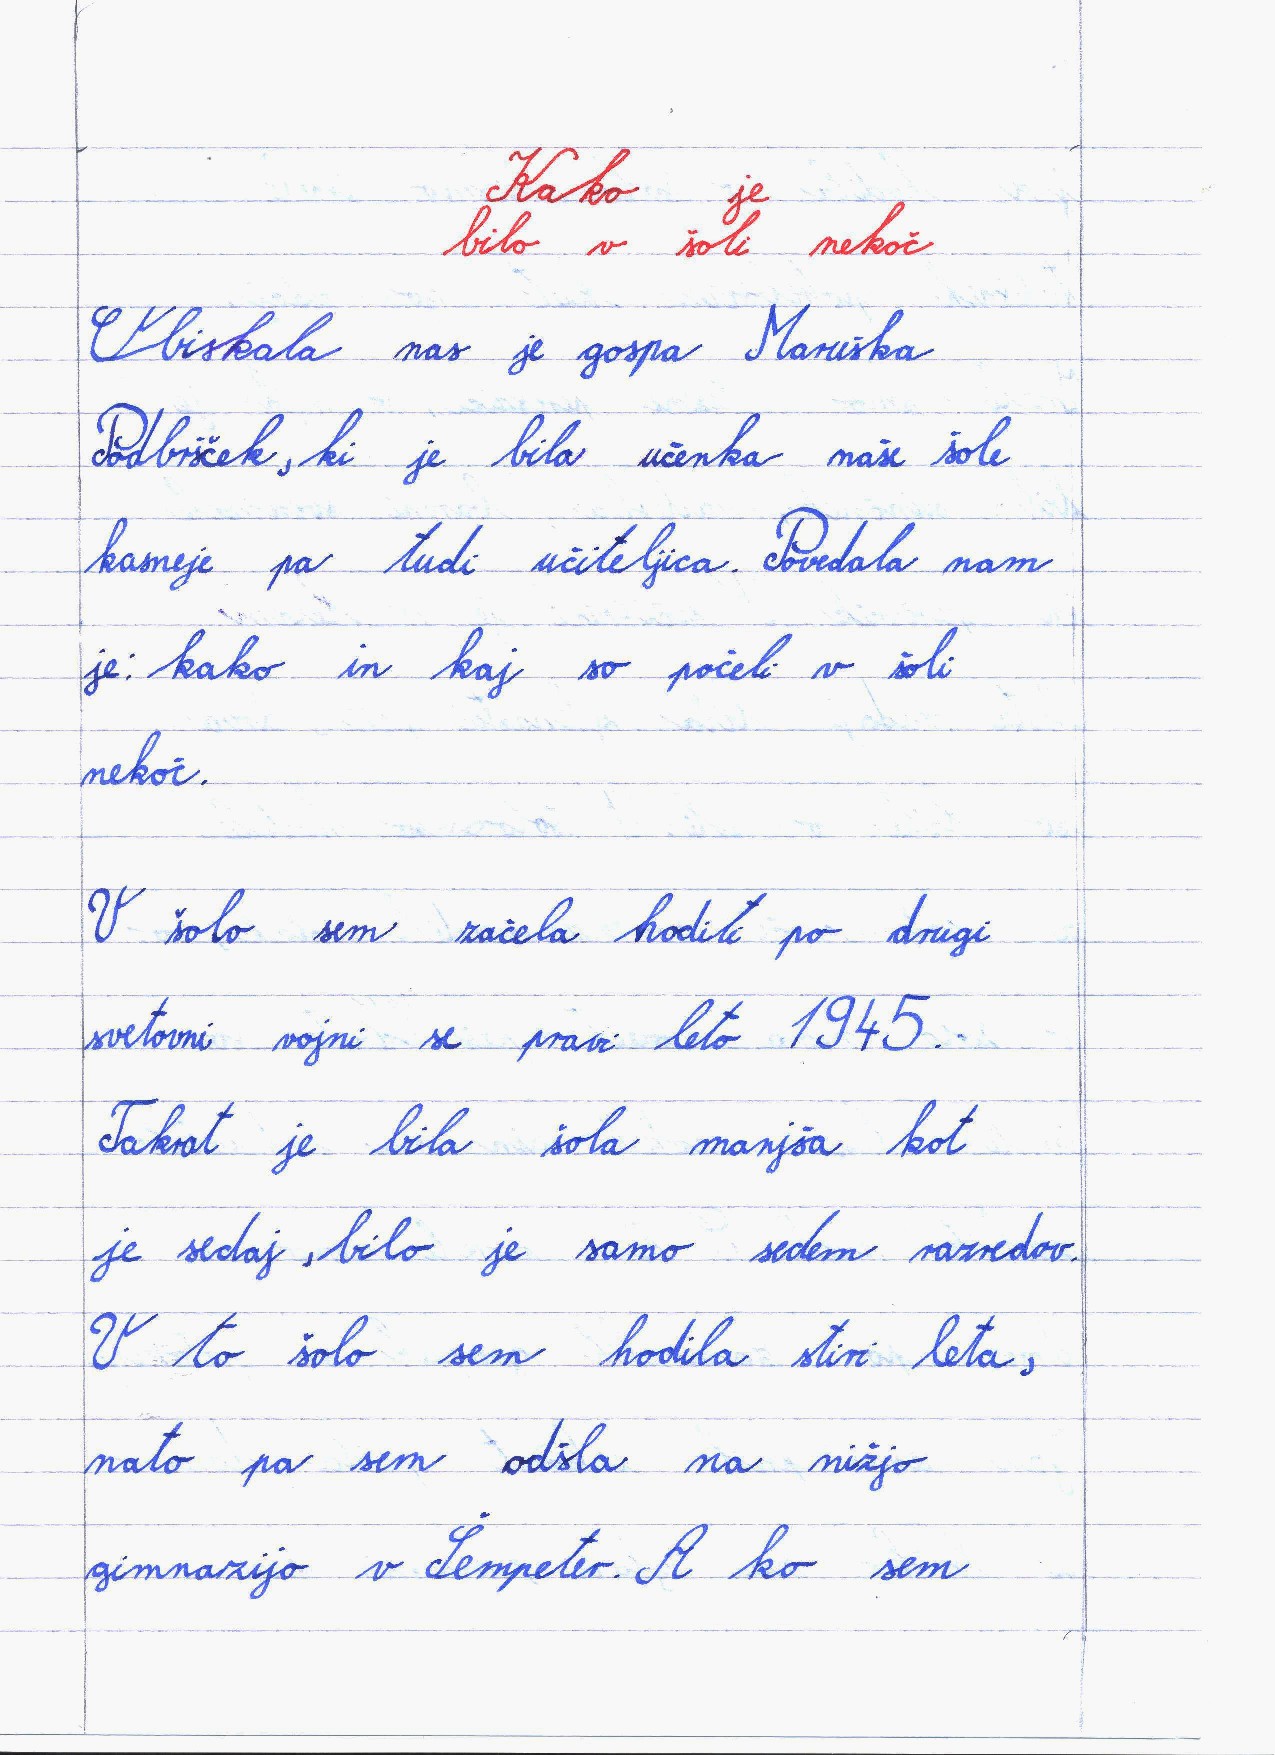 Kako je
bilo v šoli nekoč
Obiskala nas je gospa Maruška
Podbršček, ki je bila učenka naše šole
kasneje pa tudi učiteljica. Povedala nam
je: kako in kaj so počeli v šoli
nekoč.
V šolo sem začela hoditi po drugi
svetovni vojni se pravi leto 1945.
Takrat je bila šola manjša kot
je sedaj, bilo je samo sedem razredov.
V to šolo sem hodila štiri leta,
nato pa sem odšla na nižjo
gimnazijo v Šempeter. A ko sem